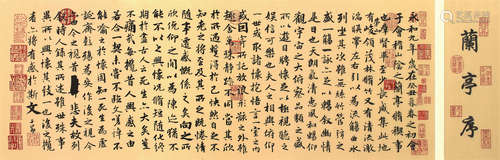 蘭亭序
永和九年歲在癸丑暮春之初會
于會稽山陰之蘭亭脩稧事
也群賢畢至少長咸集此地
有崇山峻領茂林脩竹又有清流激
湍暎帶左右引以為流觴曲水
列坐其次雖無絲竹管弦之
盛一觴一詠亦足以暢敘幽情
是日也天朗氣清惠風和暢仰
觀宇宙之大俯察品類之盛
所以遊目騁懷足以極視聽之
娛信可樂也夫人之相與俯仰
一世或取諸懷抱悟言一室之內
或因寄所託放浪形骸之外雖
趣舍萬殊靜躁不同當其欣
於所遇暫得於己快然自足不
知老之將至及其所之既惓情
隨事遷感慨係之矣向之所
欣俛仰之間以為陳迹猶不
能不以之興懷況脩短隨化終
期於盡古人云死生亦大矣豈
不痛哉每攬昔人興感之由
若合一契未嘗不臨文嗟悼不
能喻之於懷固知一死生為虛
誕齊彭殤為妄作後之視今
亦由今之視昔悲夫故列
敘時人錄其所述雖世殊事
異所以興懷其致一也後之攬
者亦將有感於斯文